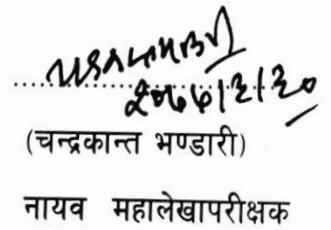 २०७५/२/३०
(चन्द्रकान्त भण्डारी)
नायव महालेखापरीक्षक